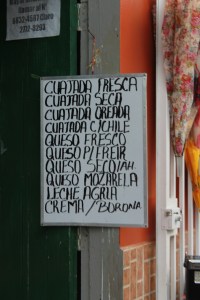 CUAJADA FRESCA
CUAJADA SECA
CUAJADA OREADA
CUAJADA C/CHILE
QUESO FRESCO
QUESO P/FREIR
QUESO SECO/AH.
QUESO MOZARELA
LECHE AGRIA
CREMA /"BORONA